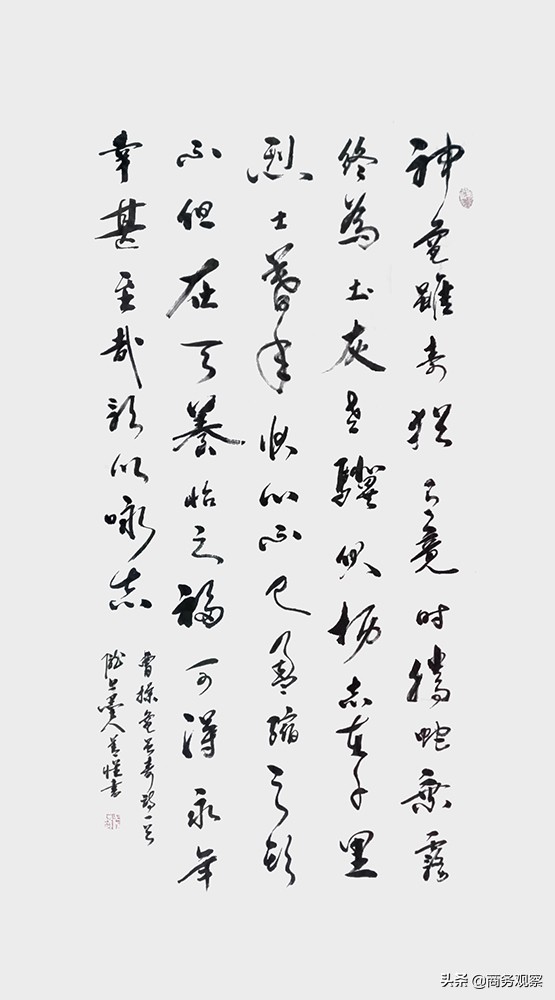 神龜雖寿猶有竟时騰蛇乘霧
終為土灰老驥伏枥志在千里
烈士暮年壮心不已盈缩之期
不但在天養怡之福可得永年
幸甚至哉歌以咏志
曹操龜虽寿诗一首
陇上墨人書
头条 @商务观察